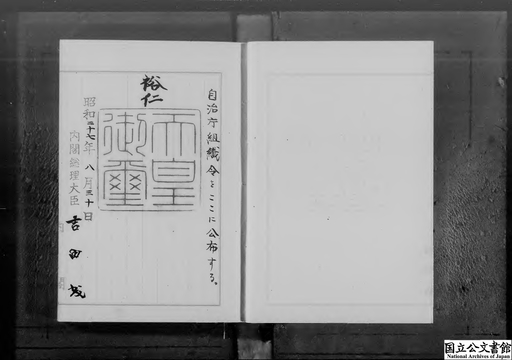 自治庁組織令をここに公布する。
裕仁
天皇御璽
昭和二十七年八月三十日
内閣総理大臣 吉田茂
内閣
国立公文書館
National Archives of Japan